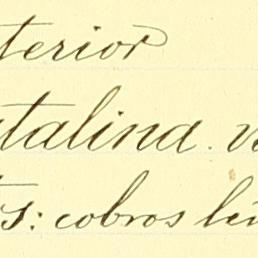 terior
talina. v
s: cobros lin